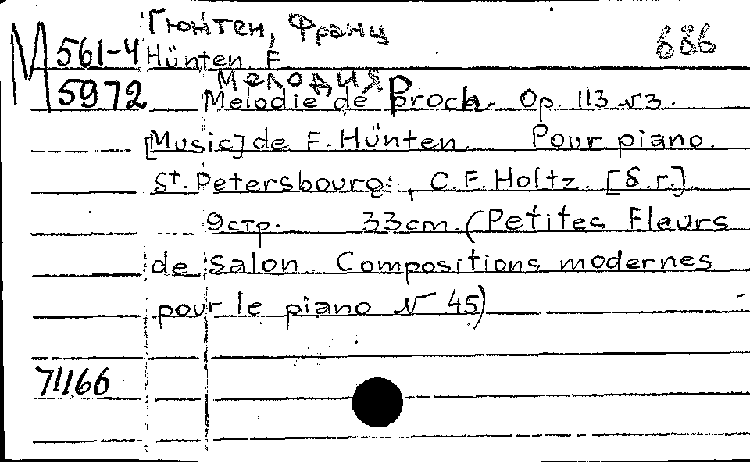 Гюнтен, Франц
М 561-4 Hünten F. 686
5972 Мелодия
Melodie de Proch. Op. 113 N3.
[Music] de F. Hünten. Pour piano.
St. Petersbourg:, C.F. Holtz [S. г.]
9 стр. 33 cm. (Petites Fleurs
de Salon. Compositions modernes
pour le piano N 45)
71166